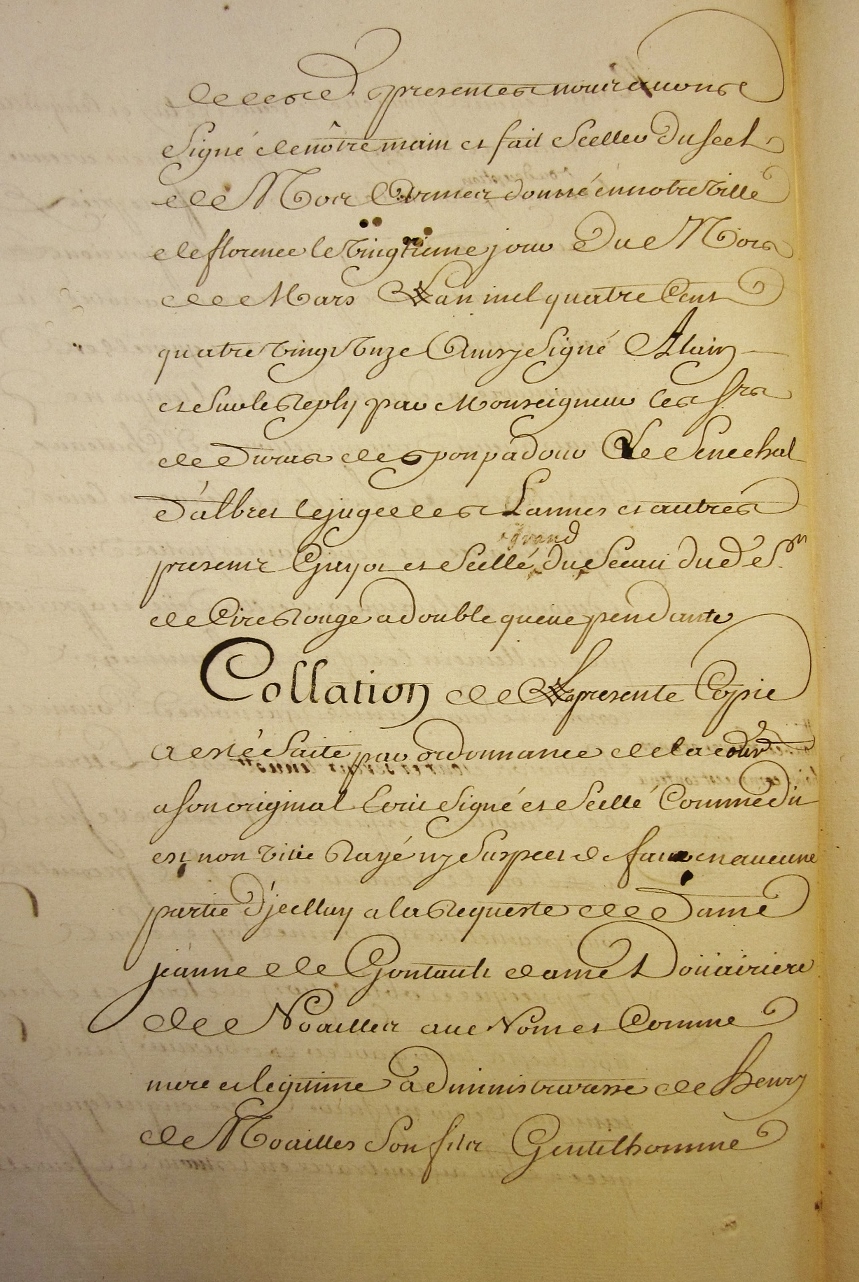 de ces d. presentes nous avons
Signé de nôtre main et fait Sceller du Scel
de Nos Armes donné en notre Ville
de florence le Vingtieme jour Du Mois
de Mars L'an mil quatre Cent
quatre Vingt Onze Ainsy Signé Alain
et Sur le Reply par Monseigneur les Srs
de Duras de pompadour Le Senechal
D'albret le juge des Lannes et autres
presens Gayot et Scellé du grand Sceau dud. Sr.
de Cire Rouge a double queue pendante
Collation de La presente Copie
a esté faite par ordonnance de la cour
a son original Ecrit Signé et Scellé Comme dit
est non Vitié Rayé ny Suspect de faux en aucune
partie D'jcelluy a la Requeste de Dame
jeanne de Gontault dame Doüairiere
de Noailles au Nom et Comme
mere et legitime administraresse de Henry
de Noailles Son fils Gentilhomme